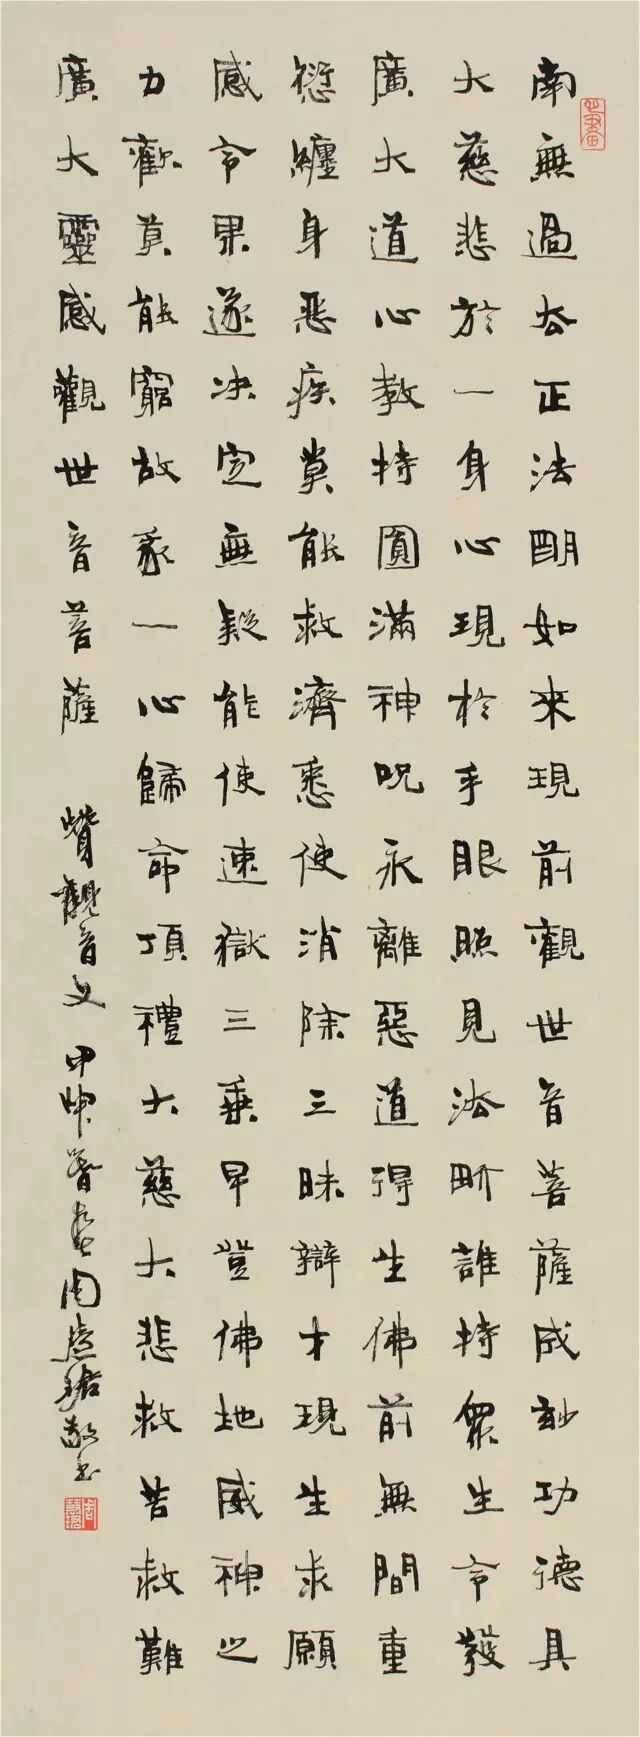 南無過去正法朙如來現前觀世音菩薩成玅功德具
大慈悲於一身心現於手眼照見法界誰持眾生令發
廣大道心教持圓滿神呪永離惡道得生佛前無間重
愆纏身惡疾莫能救濟悉使消除三昧辯才現生求願
感令果遂决定無疑能使速獄三乘早豈佛地威神之
力歡莫能窮故我一心歸命頂禮大慈大悲救苦救難
廣大靈感觀世音菩薩 贊觀音文 甲申春 周慧珺敬書
周慧珺